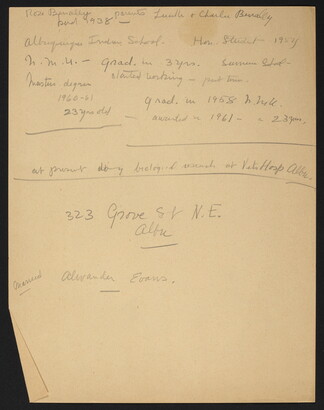 Rex Begaley parents Lucille & Charles Begaley
prod 1938 —
Albuquerque Indian School. Hon. Student 1954
N.M.U — Grad. in 3 yrs. Summer School
Masters degree Started working — part time.
1960-61 Grad. in 1958 N.M.U.
23 yrs old — awarded in 1961 — 23 yrs.
at present doing biological research at Vets Hosp Albu.
323 Grove St N.E.
Albu
married Alexander Evans.